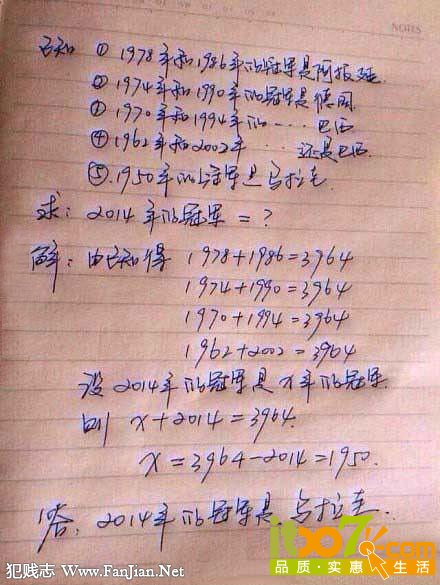 NOTES
已知 ① 1978年和1986年的冠军是阿根廷.
② 1974年和1990年的冠军是德国
③ 1970年和1994年的…巴西
④ 1962年和2002年…还是巴西.
⑤.1950年的冠军是乌拉圭.
求: 2014年的冠军=?
解: 由已知得 1978+1986=3964
1974+1990=3964
1970+1994=3964
1962+2002=3964
设2014年的冠军是x年的冠军
则 x+2014=3964.
x=3964-2014=1950.
答: 2014年的冠军是乌拉圭.
it007.com
品质·实惠·生活
犯贱志 Www.FanJian.Net